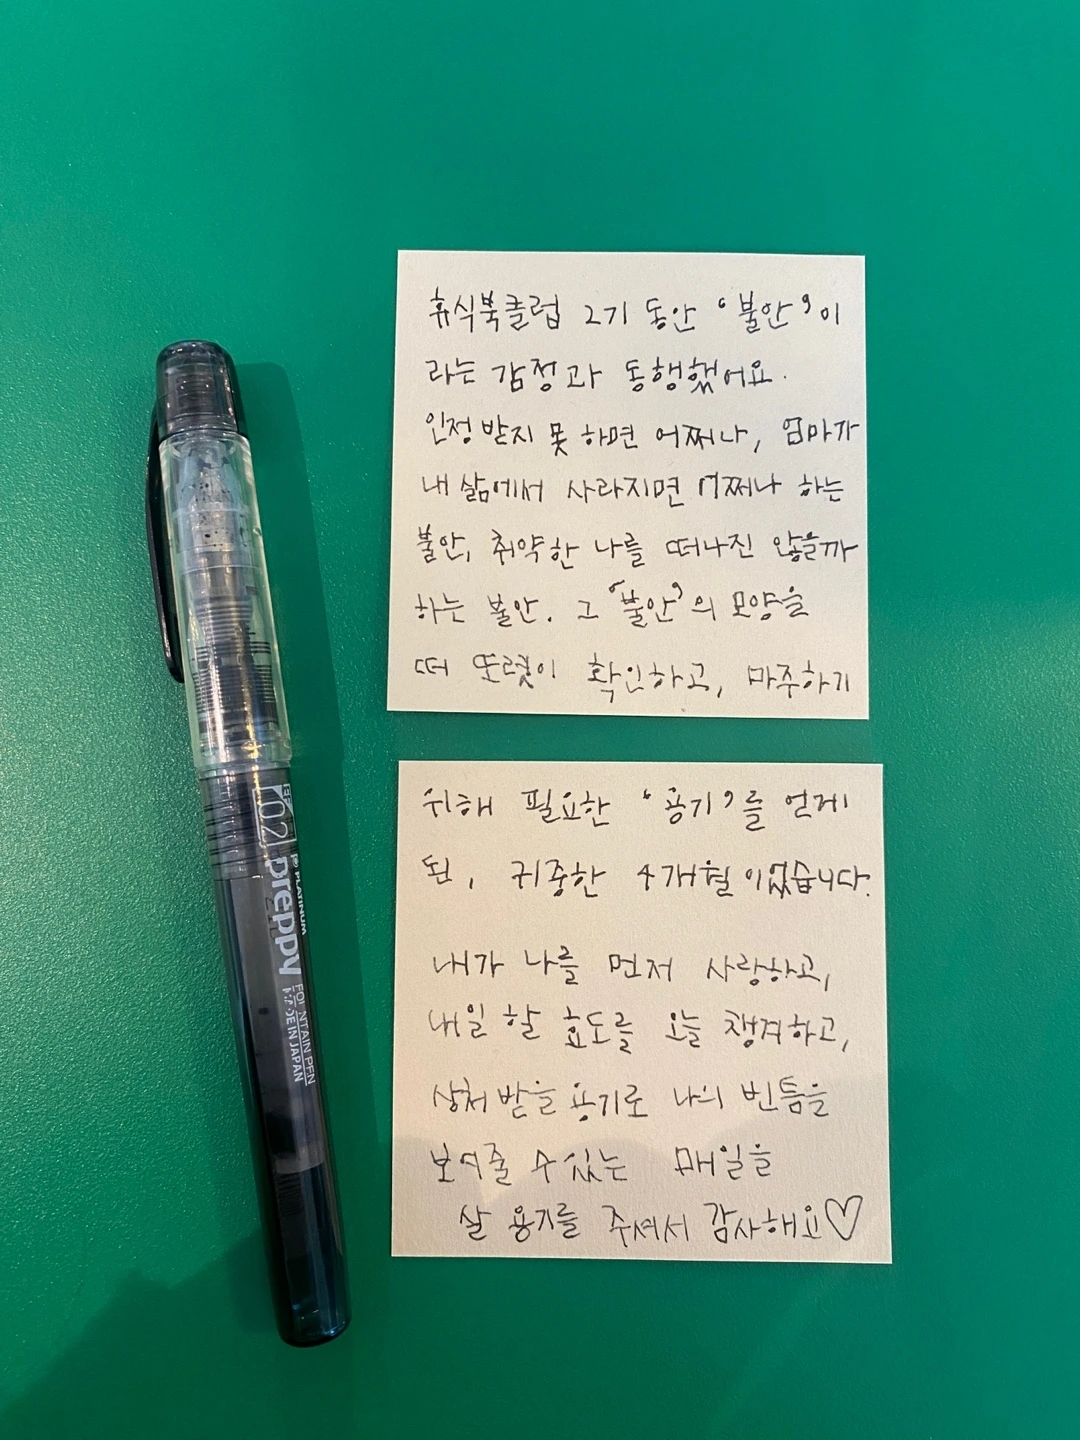 휴식북클럽 2기 동안 '불안'이
라는 감정과 동행했어요.
인정 받지 못 하면 어쩌나, 엄마가
내 삶에서 사라지면 어쩌나 하는
불안, 취약한 나를 떠나진 않을까
하는 불안. 그 '불안'의 모양을
떠 또렷이 확인하고, 마주하기
위해 필요한 '용기'를 얻게
된, 귀중한 4개월이었습니다.
내가 나를 먼저 사랑하고,
내일 할 효도를 오늘 챙겨하고,
상처 받을 용기로 나의 빈틈을
보여줄 수 있는 매일을
살 용기를 주셔서 감사해요♡
02
PLATINUM
preppy
FOUNTAIN PEN
MADE IN JAPAN